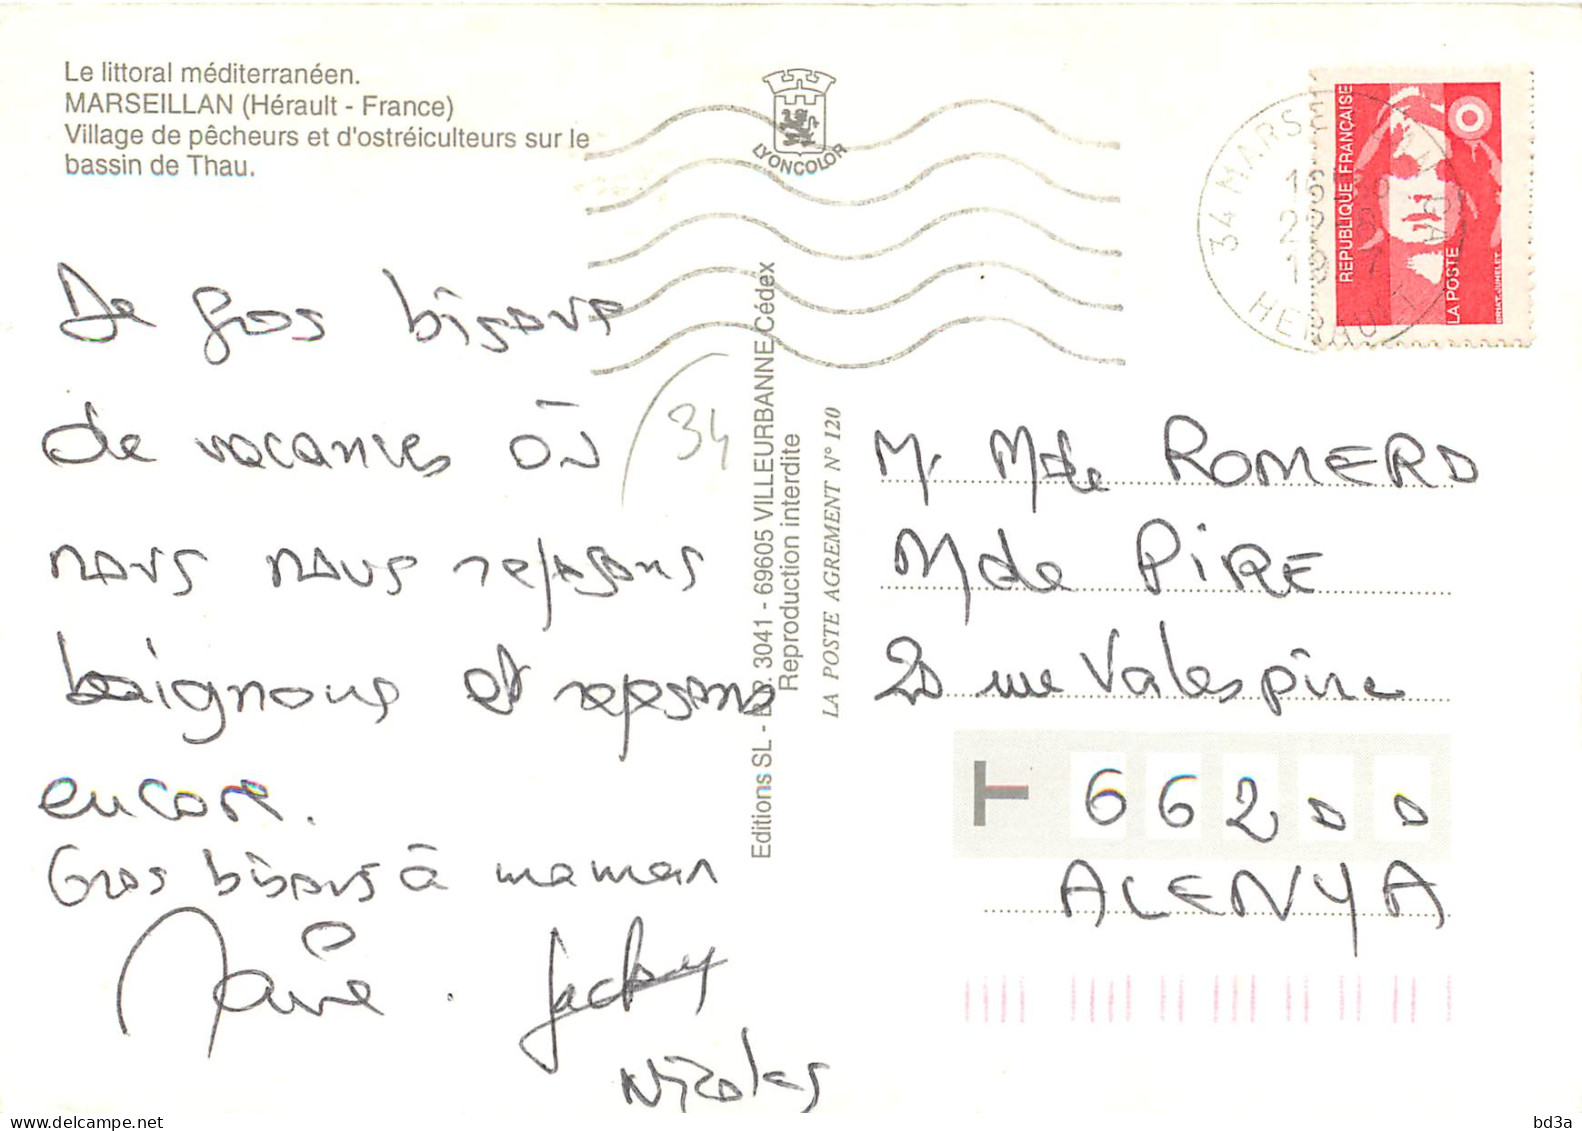 Le littoral méditerranéen.
MARSEILLAN (Hérault - France)
Village de pêcheurs et d'ostréiculteurs sur le
bassin de Thau.
LYONCOLOR
34 MARSEILLAN
HERAULT
REPUBLIQUE FRANÇAISE
LA POSTE
BRIAT-JUMELET
De gros bisous
de vacances où
nous nous reposons
baignons et reposons
encore.
Gros bisous à maman
Jacky
Nicolas
34
Editions SL - B.P. 3041 - 69605 VILLEURBANNE Cédex
Reproduction interdite
LA POSTE AGREMENT N° 120
Mr Mde ROMERO
Mde PIRE
20 rue Valespire
66200
ALENYA
bd3a
Delcampe.net